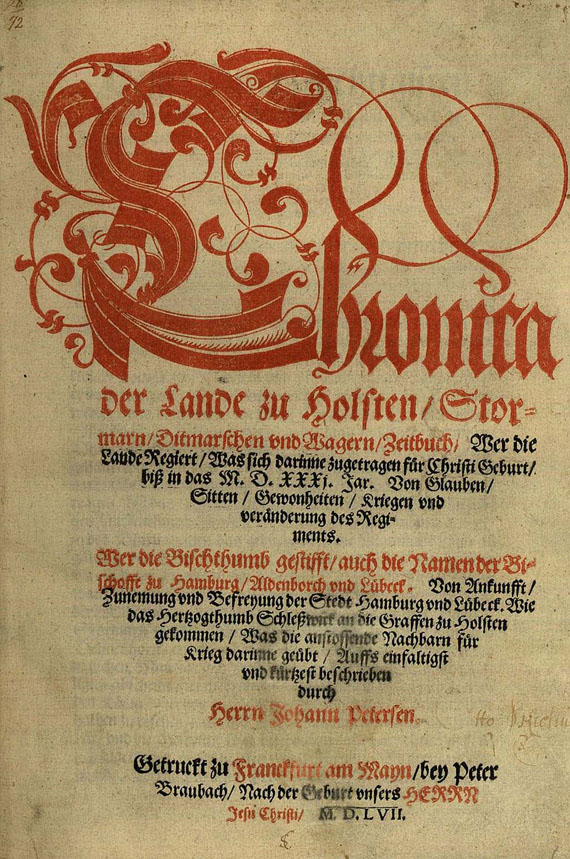 Chronica
der Lande zu Holsten/ Stor-
marn/ Ditmarschen vnd Wagern/ Zeitbuch/ Wer die
Lande Regiert/ Was sich darinne zugetragen für Christi Geburt/
biß in das M. D. XXXj. Jar. Von Glauben/
Sitten/ Gewonheiten/ Kriegen vnd
veränderung des Regi-
ments.
Wer die Bischthumb gestifft/ auch die Namen der Bi-
schoffe zu Hamburg/ Aldenborch vnd Lübeck. Von Ankunfft/
Zunemung vnd Befreyung der Stedt Hamburg vnd Lübeck. Wie
das Hertzogthumb Schleßwick an die Graffen zu Holsten
gekommen/ Was die anstossende Nachbarn für
Krieg darinne geübt/ Auffs einfaltigst
vnd kürtzest beschrieben
durch
Herrn Johann Petersen.
Getruckt zu Franckfurt am Mayn/ bey Peter
Braubach/ Nach der Geburt vnsers HERRN
Jesu Christi/ M. D. LVII.